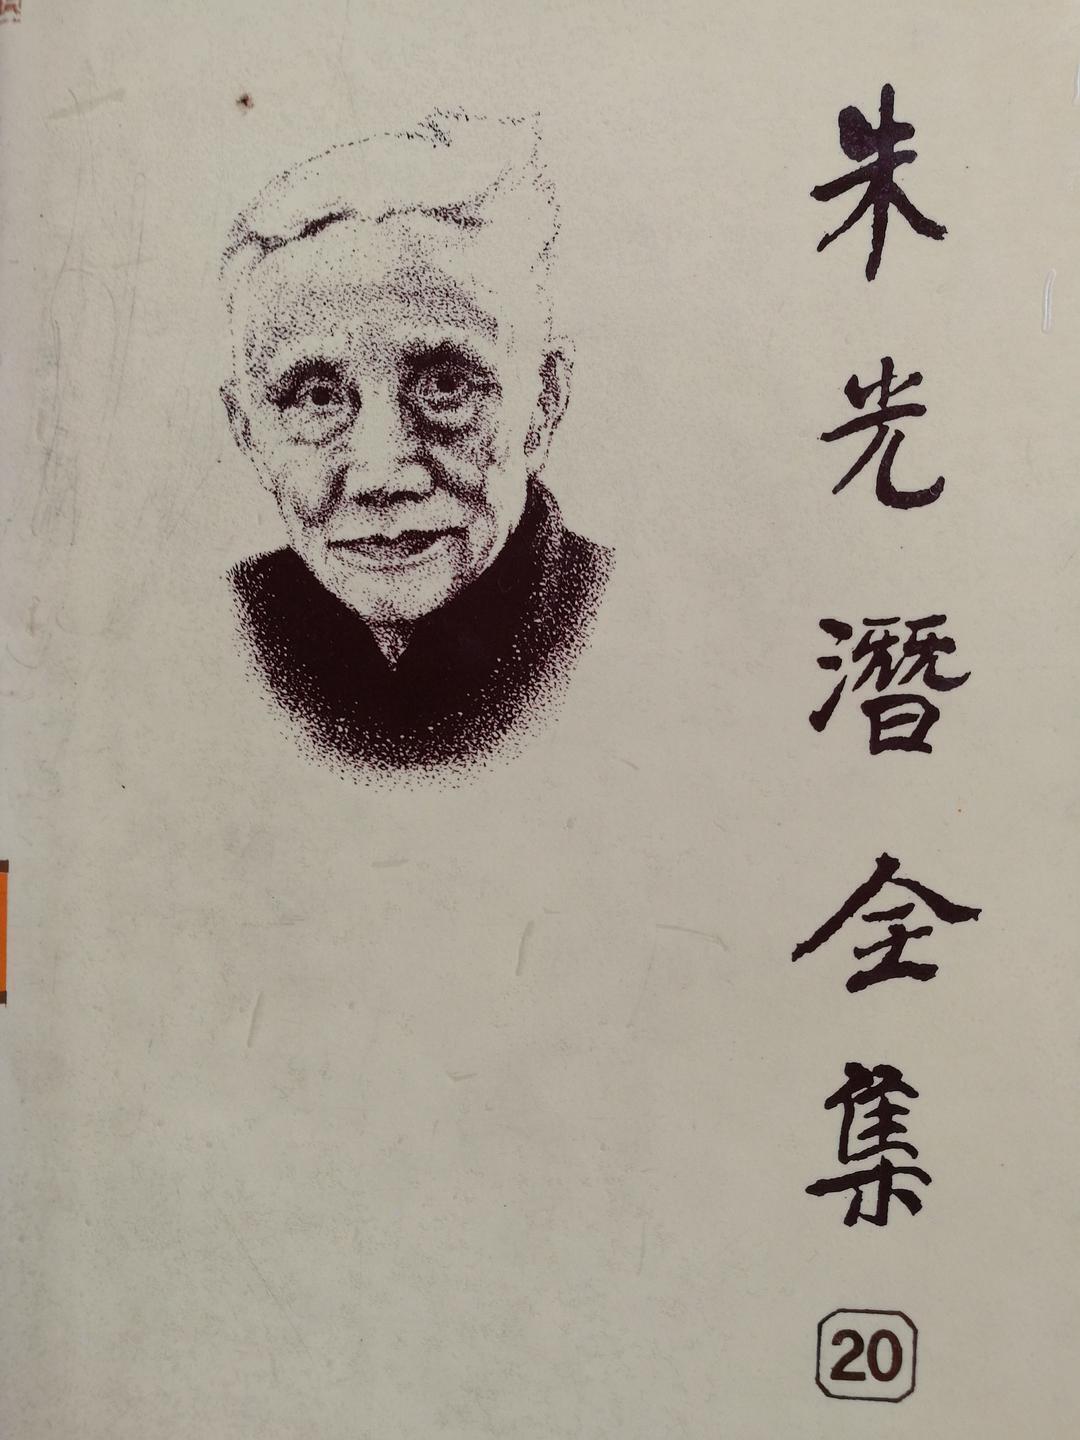 朱光潛全集
20